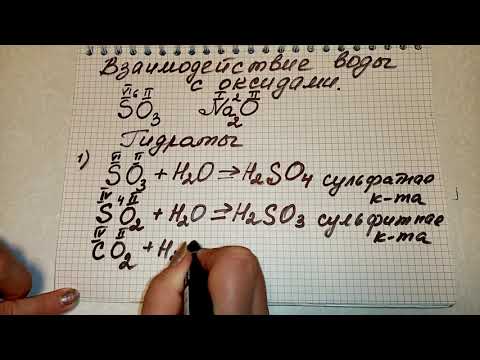 Взаимодействие воды
с оксидами.
VI 6 II I 2 II
SO₃ Na₂O
Гидраты
1) VI II
SO₃ + H₂O ⇒ H₂SO₄ сульфатная
к-та
IV 4 II
SO₂ + H₂O ⇒ H₂SO₃ сульфитная
к-та
IV II
CO₂ + H₂